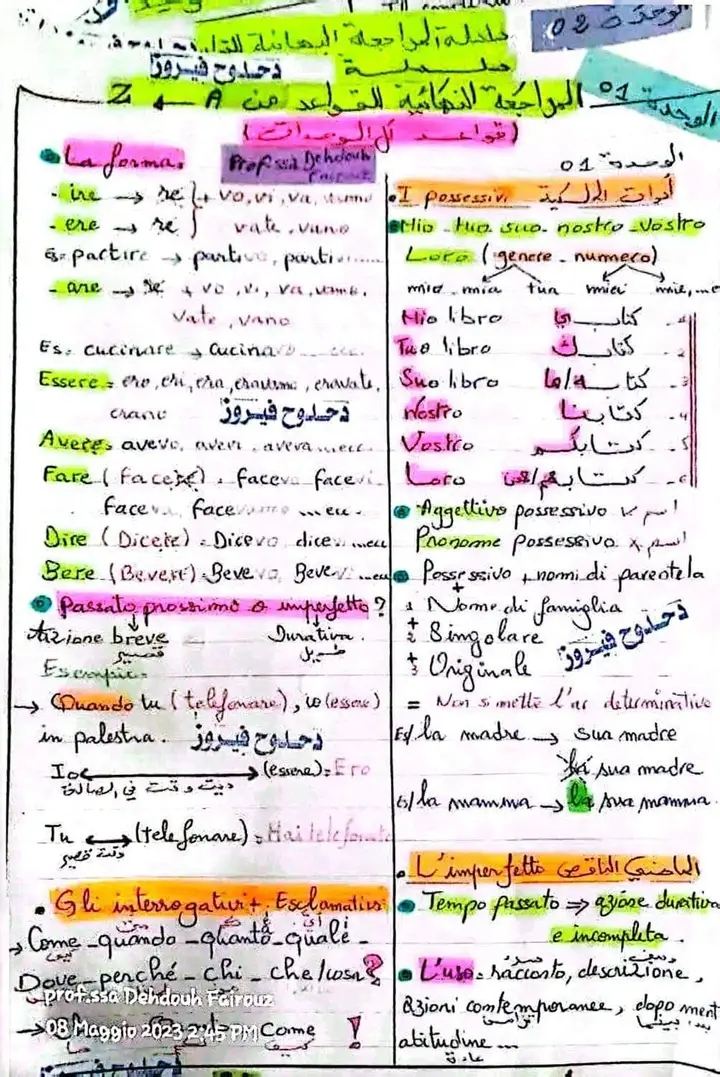 الوحدة 02
سلسلة المراجعة النهائية
دحدوح فيروز
سلسلة
المراجعة النهائية القواعد من Z ← A
الوحدة 01
(قواعد كل الوحدات)
La forma:
Prof.ssa Dehdouh Fairouz
- ire → re } + vo, vi, va, vamo
- ere → re } vate, vano
Es. partire → partivo, partivi......
- are → re + vo, vi, va, vamo,
vate, vano
Es. cucinare → cucinavo ... ecc.
Essere = ero, eri, era, eravamo, eravate,
erano دحدوح فيروز
Avere = avevo, avevi, aveva...ecc.
Fare (Facere) = facevo facevi..
faceva, facevamo ...ecc.
Dire (Dicere) = Dicevo, dicevi...ecc
Bere (Bevere) = Bevevo, Bevevi...ecc
Passato prossimo o imperfetto ?
Azione breve Durativa
قصير طويل
Esempio:
→ Quando tu (telefonare), io (essere)
in palestra. دحدوح فيروز
Io ↔ (essere) = Ero
Tu ↔ (telefonare) = Hai telefonato
وقت قصير
Gli interrogativi + Esclamativi
→ Come - quando - quanto - quale -
Dove - perché - chi - che/cosa ?
prof.ssa Dehdouh Fairouz
08 Maggio 2023 2:45 PM
→ Come !
كيف
الوحدة 01
I possessivi أدوات الملكية
Mio - tuo - suo - nostro - vostro
Loro (genere - numero)
mio - mia tua miei mie,...
Mio libro كتابي -1
Tuo libro كتابك -2
Suo libro كتابه/ها -3
Nostro كتابنا -4
Vostro كتابكم -5
Loro كتابهم/هن -6
Aggettivo possessivo اسم ✓
Pronome possessivo اسم x
Possessivo + nomi di parentela
1 Nome di famiglia
+
2 Singolare
+
3 Originale دحدوح فيروز
= Non si mette l'ar determinativo
Es/ la madre → sua madre
la sua madre
Es/ la mamma → la sua mamma.
L'imperfetto الماضي الناقص
Tempo passato ⇒ azione durativa
e incompleta.
L'uso = racconto, descrizione,
Azioni contemporanee, dopo ment
abitudine ...
عادة
دحدوح فيروز